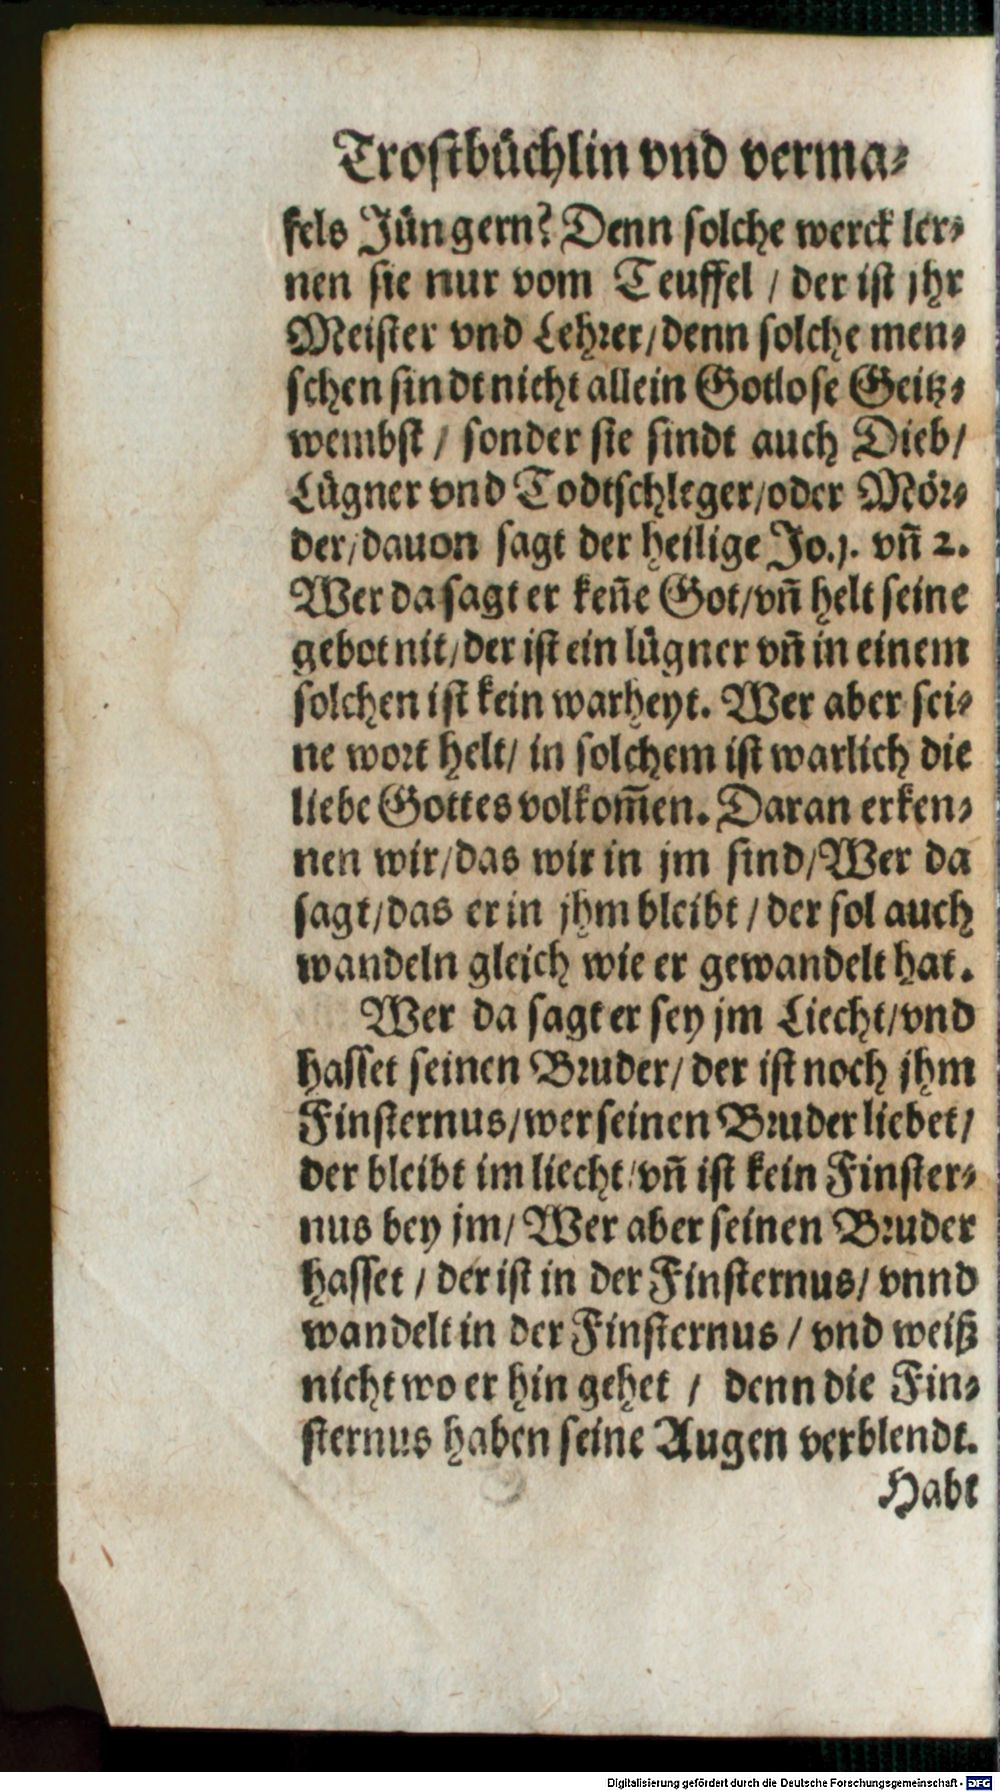 Trostbüchlin vnd verma-
fels Jüngern? Denn solche werck ler-
nen sie nur vom Teuffel / der ist jhr
Meister vnd Lehrer/denn solche men-
schen sindt nicht allein Gotlose Geitz-
wembst / sonder sie sindt auch Dieb/
Lügner vnd Todtschleger/oder Mör-
der/dauon sagt der heilige Jo.j. vñ 2.
Wer da sagt er keñe Got/vñ helt seine
gebot nit/der ist ein lügner vñ in einem
solchen ist kein warheyt. Wer aber sei-
ne wort helt/ in solchem ist warlich die
liebe Gottes volkom̃en. Daran erken-
nen wir/das wir in jm sind/Wer da
sagt/das er in jhm bleibt / der sol auch
wandeln gleich wie er gewandelt hat.
Wer da sagt er sey jm Liecht/vnd
hasset seinen Bruder/ der ist noch jhm
Finsternus/wer seinen Bruder liebet/
der bleibt im liecht/vñ ist kein Finster-
nus bey jm/ Wer aber seinen Bruder
hasset / der ist in der Finsternus/ vnnd
wandelt in der Finsternus / vnd weiß
nicht wo er hin gehet / denn die Fin-
sternus haben seine Augen verblendt.
Habt
Digitalisierung gefördert durch die Deutsche Forschungsgemeinschaft - DFG